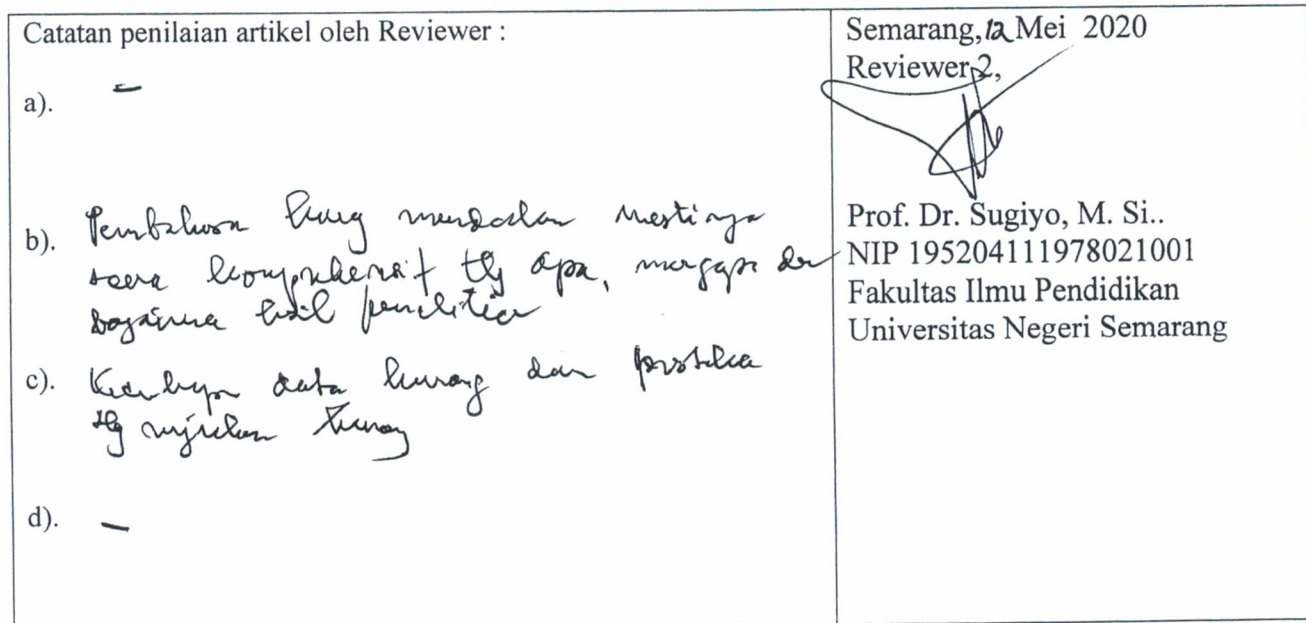 Catatan penilaian artikel oleh Reviewer :
a). -
b). Pembahasan kurang mendalam mestinya
secara komprehensif ttg apa, mengapa dan
bagaimana hasil penelitian
c). data kurang dan pustaka
ttg rujukan kurang
d). -
Semarang, 12 Mei 2020
Reviewer 2,
Prof. Dr. Sugiyo, M. Si..
NIP 195204111978021001
Fakultas Ilmu Pendidikan
Universitas Negeri Semarang